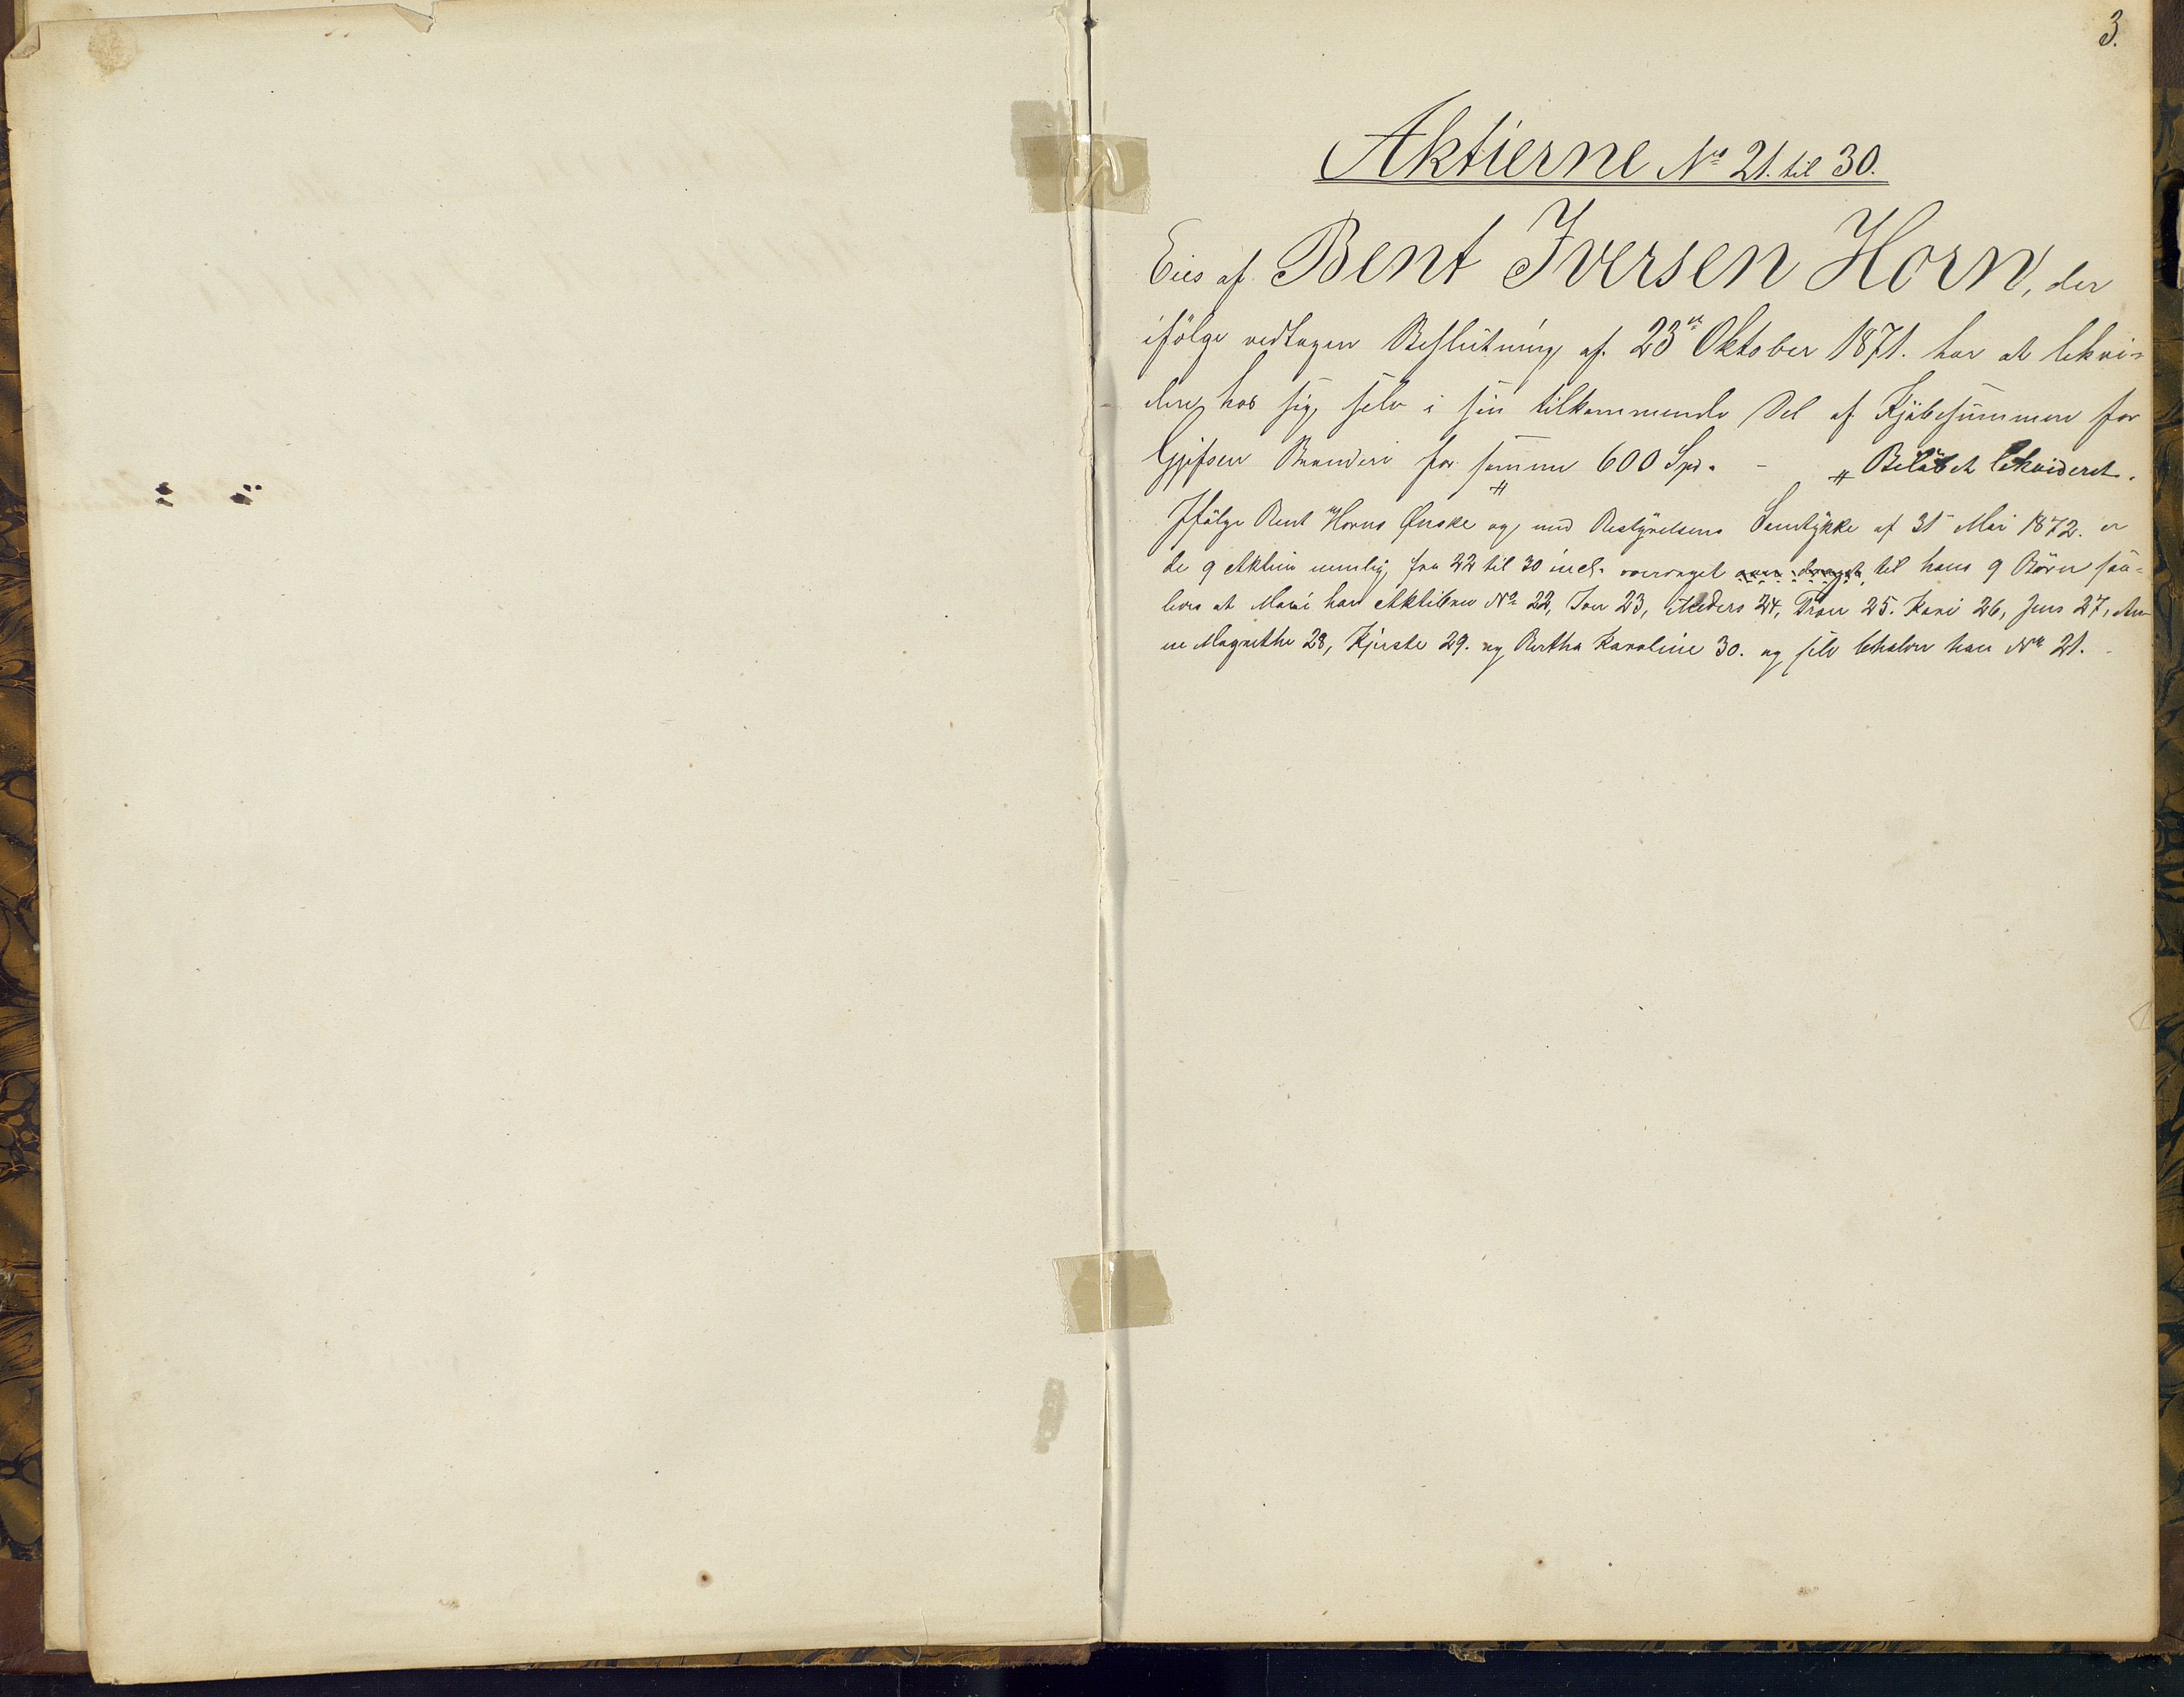 3.
Aktierne No 21. til 30.
Eies af Bent Iversen Horn, der
ifölge vedtagen Beslutning af 23de Oktober 1871. har at lekvi=
dere hos sig selv i sin tilkommende Del af Kjöbesummen for
Brænderi for summa 600 Spd. - " Belöbet lekvideret.
Ifölge Bent Horns Ønske og med Bestyrelsens Samtykke af 31 Mai 1872. er
de 9 Aktier nemlig fra 22 til 30 incl. overdraget til hans 9 Börn saa=
ledes at Mari har Aktien No 22, Iver 23, Anders 24, 25. Kari 26, Jens 27, An-
ne Magrethe 28, Kjerste 29. og Bertha Karoline 30. og selv beholder han No 21.